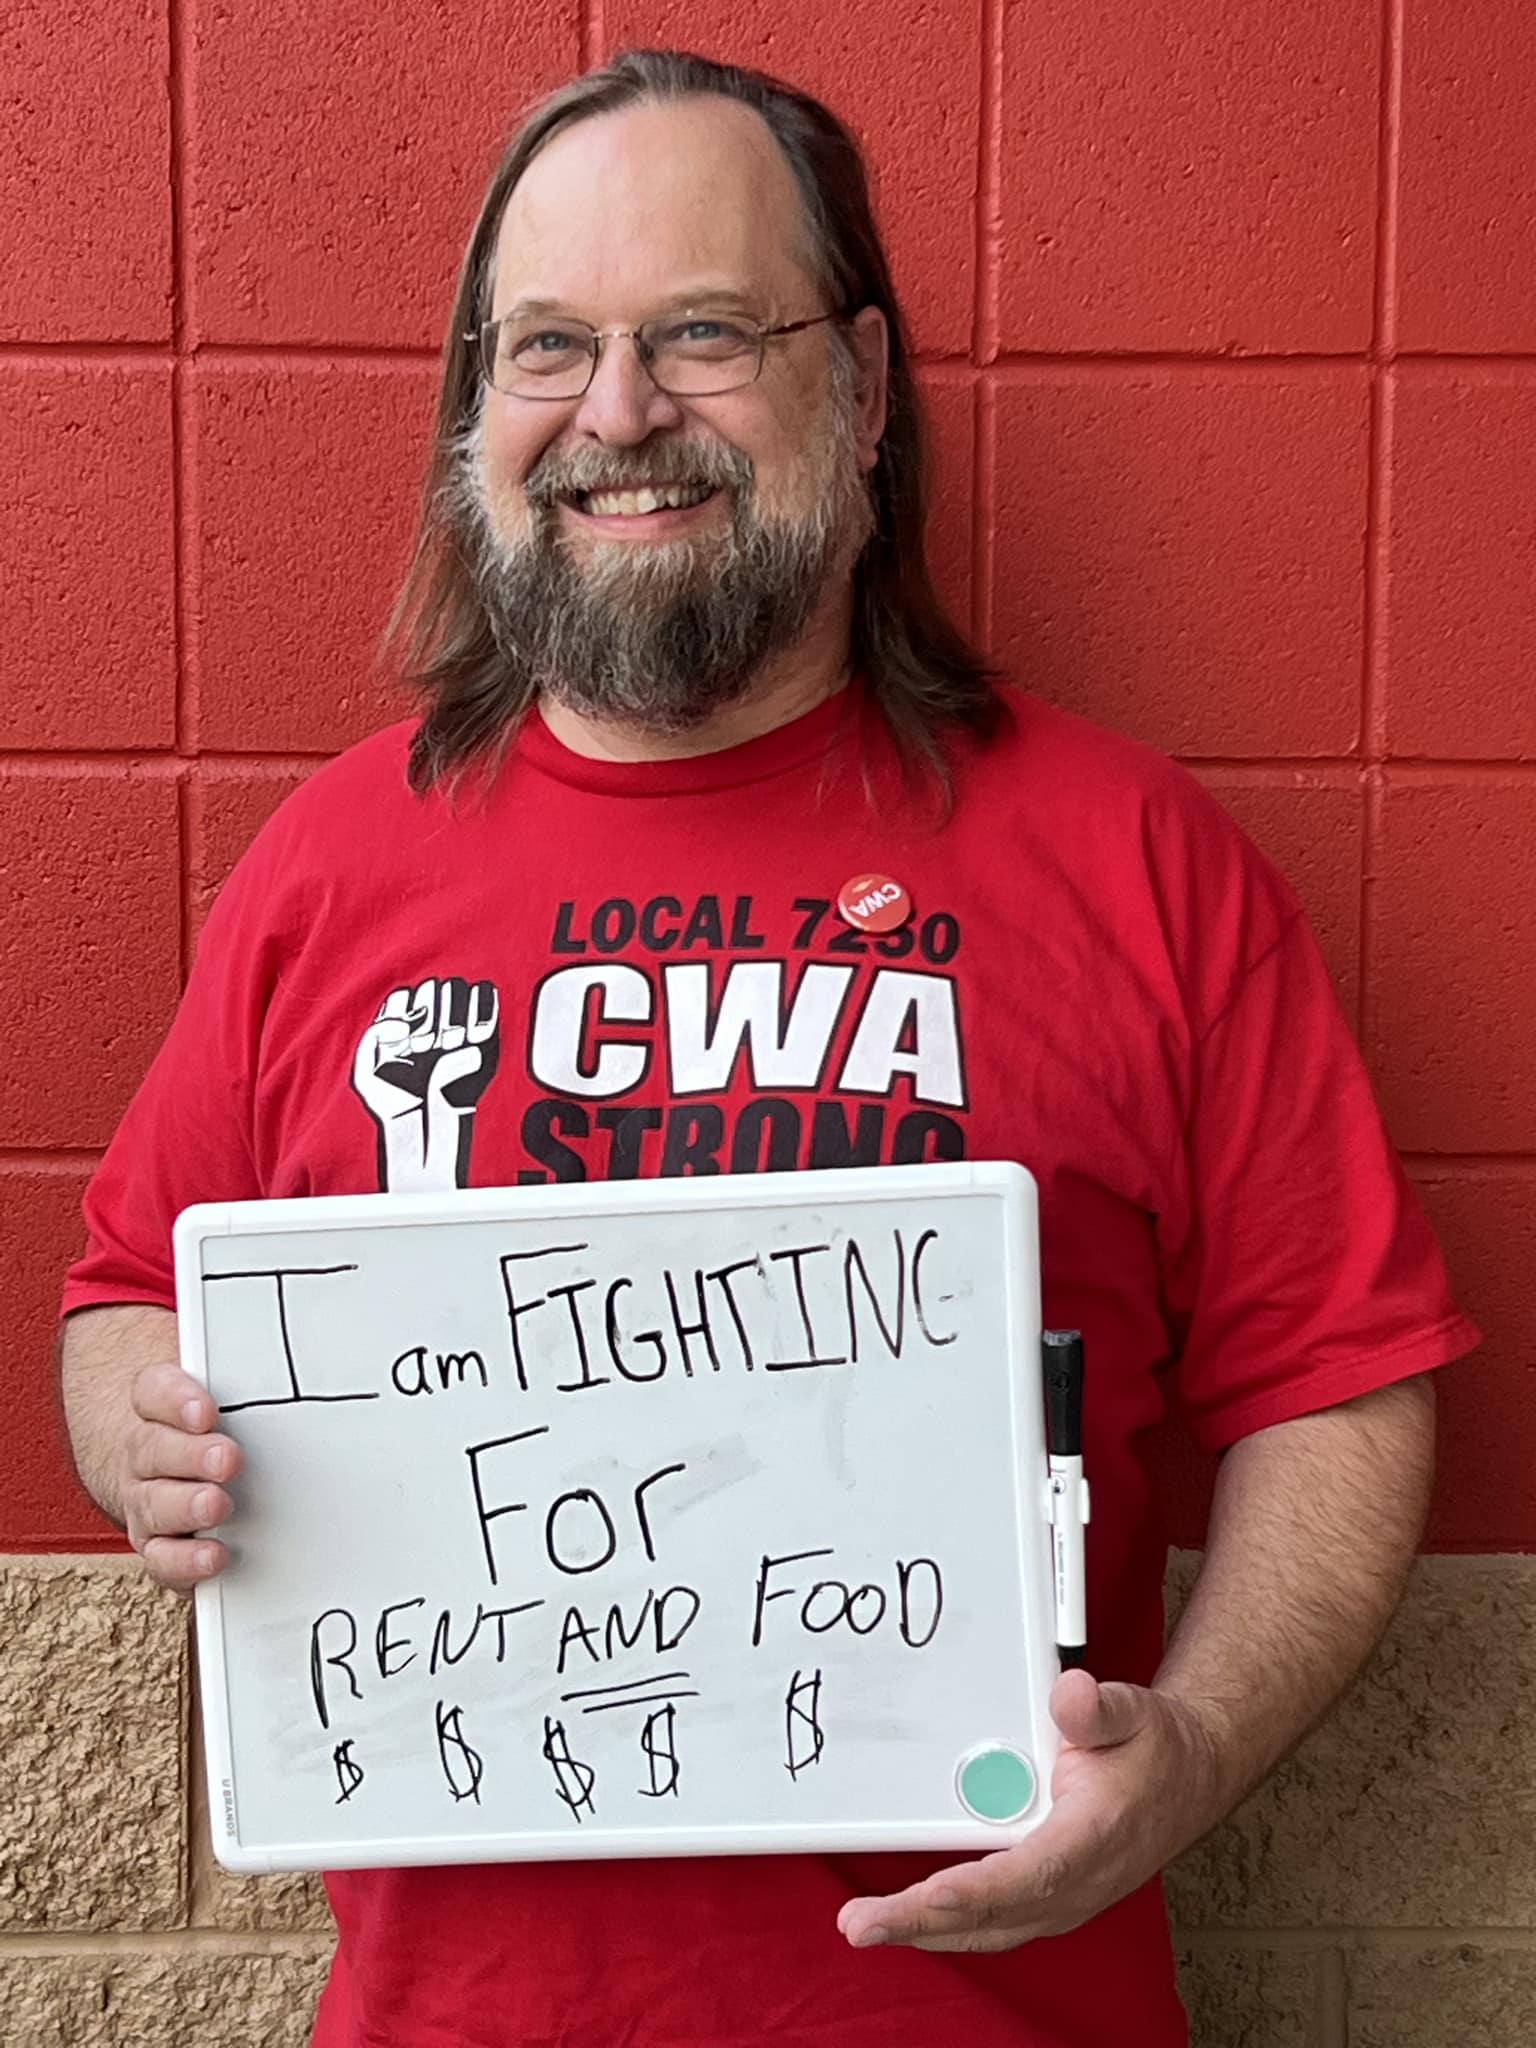 LOCAL 7250
CWA
CWA
STRONG
I am FIGHTING
For
RENT AND FOOD
$ $ $ $ $
U BRANDS